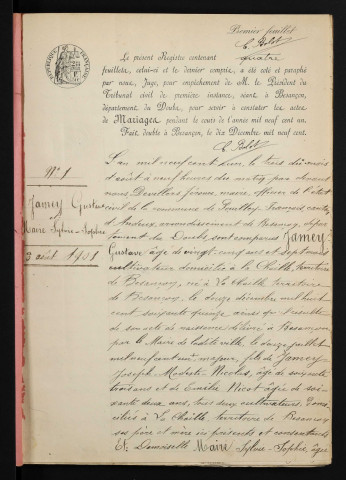 Premier feuillet
Le présent Registre contenant quatre
feuillets, celui-ci et le dernier compris, a été coté et paraphé
par nous, Juge, pour empêchement de M. le Président du
Tribunal civil de première instance, séant à Besançon,
département du Doubs, pour servir à constater les actes
de Mariages pendant le cours de l'année mil neuf cent un.
Fait double à Besançon, le dix Décembre mil neuf cent.
N° 1
Jamey Gustave
Maire Sylvie-Sophie
3 août 1901
L'an mil neuf cent un le trois du mois
d'août à neuf heures du matin par devant
nous Devillers maire officier de l'état
civil de la commune de Pouilley-Français canton
d'Audeux, arrondissement de Besançon, dépar
tement du Doubs, sont comparus Jamey
Gustave âgé de vingt-neuf ans et sept mois
cultivateur domicilié à La Chaille territoire
de Besançon, né à La Chaille territoire
de Besançon, le douze décembre mil huit
cent soixante
de son acte de naissance délivré à Besançon
par le Maire de ladite ville le douze juillet
mil neuf cent un, majeur, fils de Jamey
Joseph Modeste Nicolas, âgé de soixante
trois ans et de Nicot âgée de soi
xante deux ans, tous deux cultivateurs domi
ciliés à La Chaille territoire de Besançon
ses père et mère ici présents et consentants
Et Demoiselle Maire Sylvie-Sophie, âgée